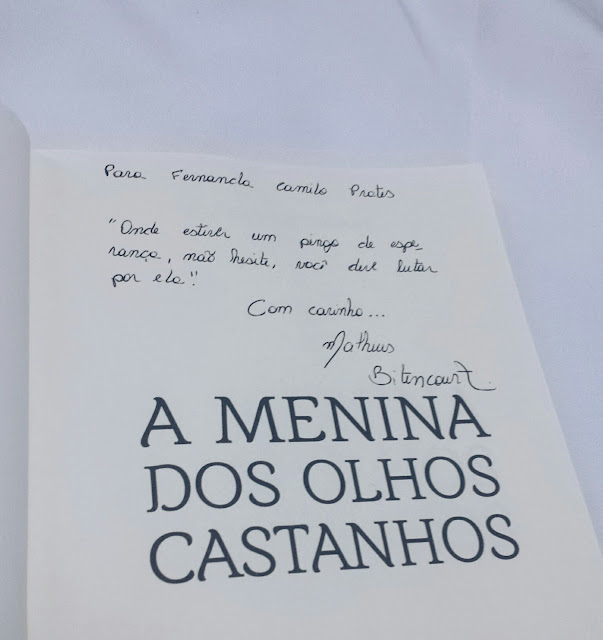 Para Fernanda Camilo Prates
"Onde estiver um pingo de espe-
rança, não hesite, você deve lutar
por ela!"
Com carinho...
Matheus
Bitencourt
A MENINA
DOS OLHOS
CASTANHOS